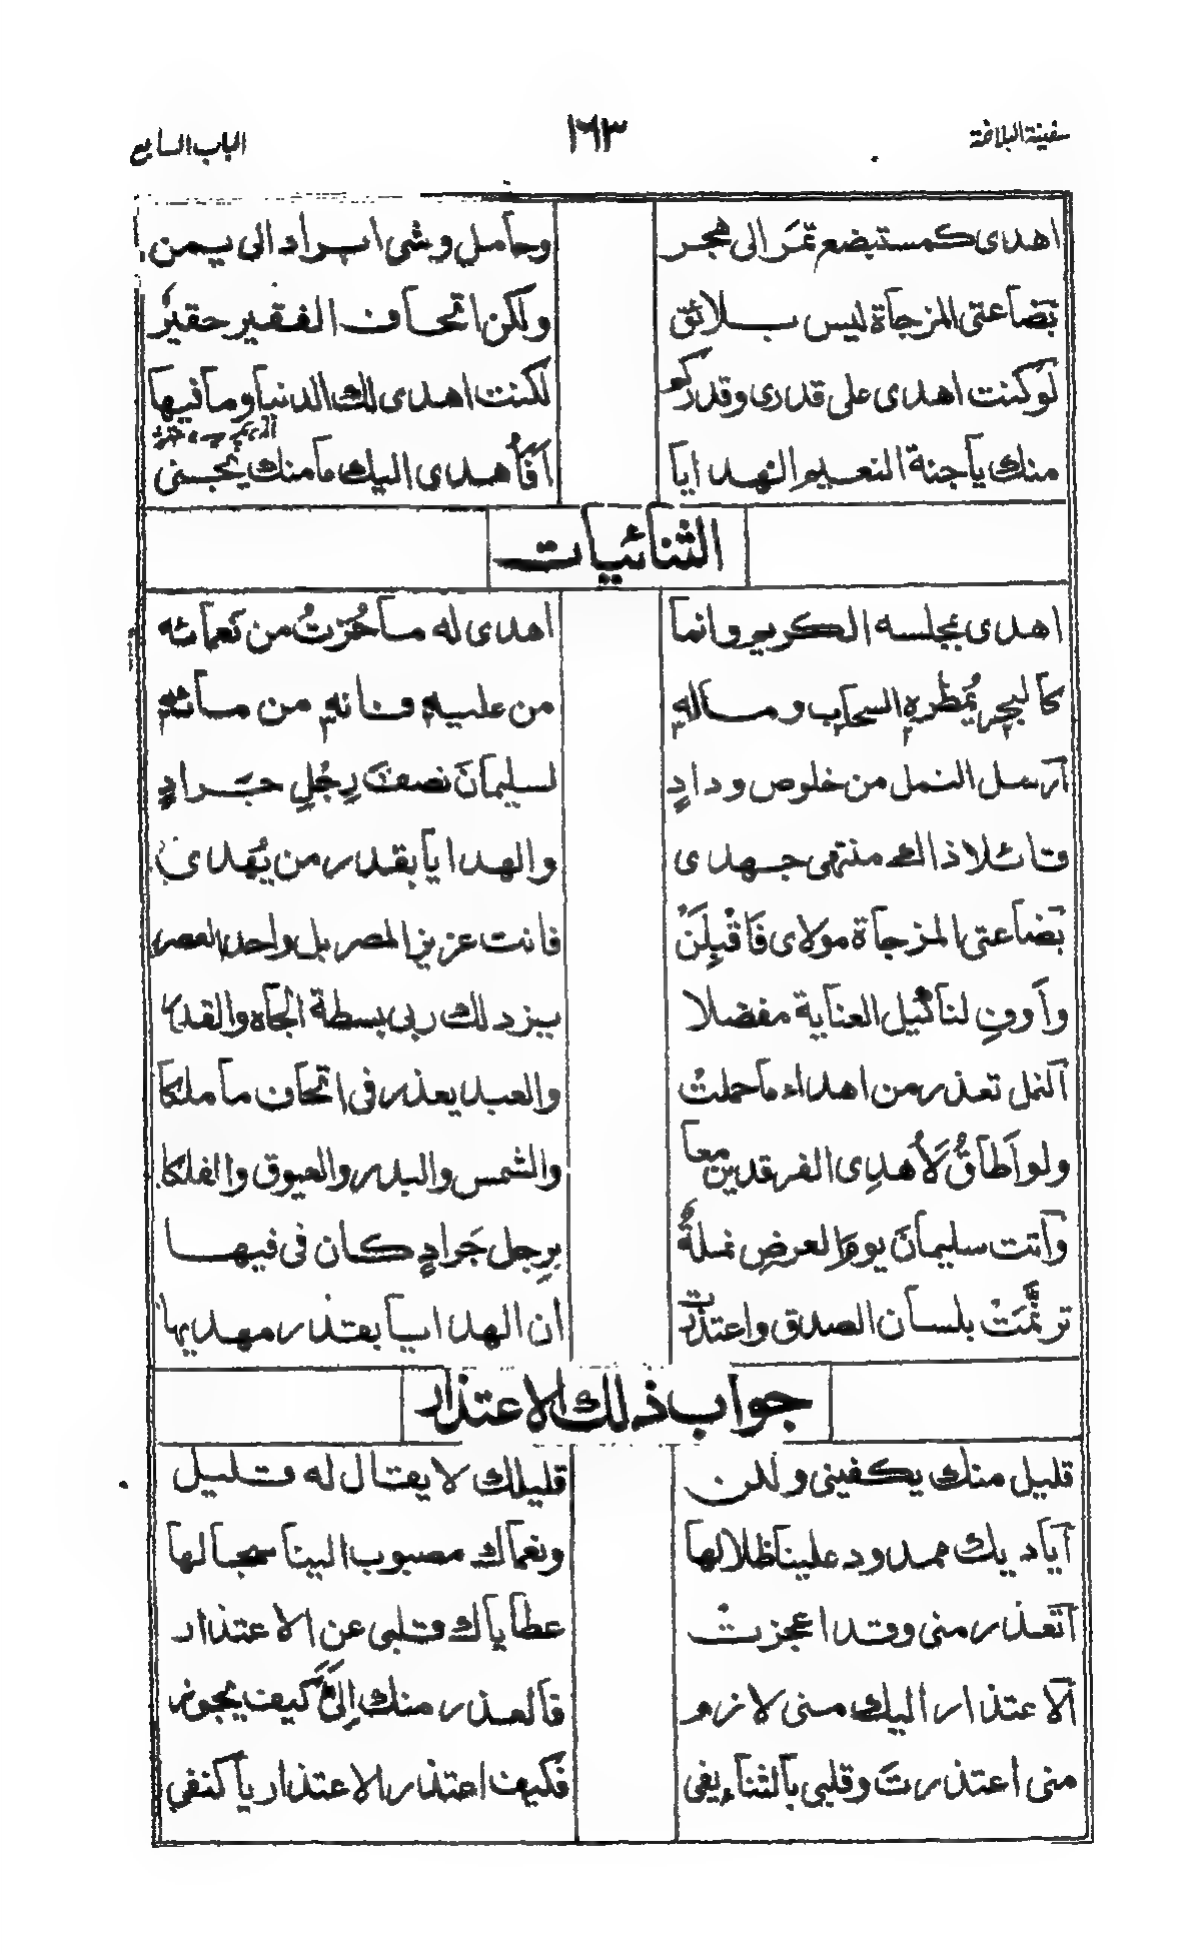 سفينة البلاغة ١٦٣ الباب السابع
اهدى كمستبضع تمَر الى هجر وحامل وشى ابراد الى يمن
بضاعتى المزجاة ليس بلائق ولكن اتحاف الفقير حقيرُ
لوكنت اهدى على قدرى وقدركو لكنت اهدى لك الدنيا وما فيها
منك ياجنة النعيم الهدايا اَفَأُهدى اليك مامنك يُجنى
الثنائيات
اهدى لمجلسه الكريم وانما اهدى له ماحُزتُ من نَعمائه
كالبحر يُمطره السحاب وماله من عليه فانه من مائه
ارسل النمل من خلوص ودادٍ لسليمانَ نصفَ رِجُلِ جَرادٍ
قائلا ذالك منتهى جهدى والهدايا بقدر من يُهدى
بضاعتى المزجاة مولاى فَاقْبِلَنْ فانت عزيز المصر بل واحد العصر
واَوفِ لنا كيل العناية مفضلا يزد لك ربى بسطة الجاه والقدر
النمل تعذر من اهداء ماحملتْ والعبد يعذر فى اتحاف ماملكا
ولواَطاَقُ لاَُهدِى الفرقدين معا والشمس والبدر والعيوق والفلكا
واَتت سليمانَ يومَ العرضِ نملةٌ بِرِجل جَرادٍ كان فى فيها
ترنَّمَتْ بلسان الصدق واعتذرت ان الهدايا بقدر مهديها
جواب ذلك الاعتذار
قليل منك يكفينى ولكن قليلك لا يقال له قليل
اَياديك ممدود علينا ظلالها ونعماك مصبوب الينا سجالها
اتعذر منى وقد اعجزتْ عطاياك قلبى عن الاعتذار
الاعتذار اليك منى لازم فالعذر منك اِلَىَّ كيف يجوز
منى اعتذرتَ وقلبى بالثناء يفى فكيف اعتذر الاعتذار ياكنفى